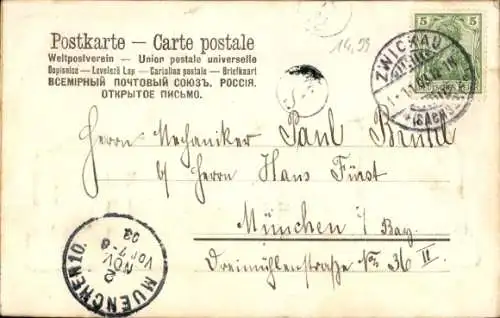 Postkarte — Carte postale
Weltpostverein — Union postale universelle
Dopisnice — Levelezö Lap — Cartolina postale — Briefkaart
ВСЕМІРНЫЙ ПОЧТОВЫЙ СОЮЗЪ. РОССІЯ.
ОТКРЫТОЕ ПИСЬМО.
14,99
5 5
ZWICKAU
(SACHS)
Herrn Mechaniker Paul
b/ Herrn Hans Fürst
München i/ Bay.
Dreimühlenstraße No 36 II
MUENCHEN 10.
2
NOV
Vor 7-8
03